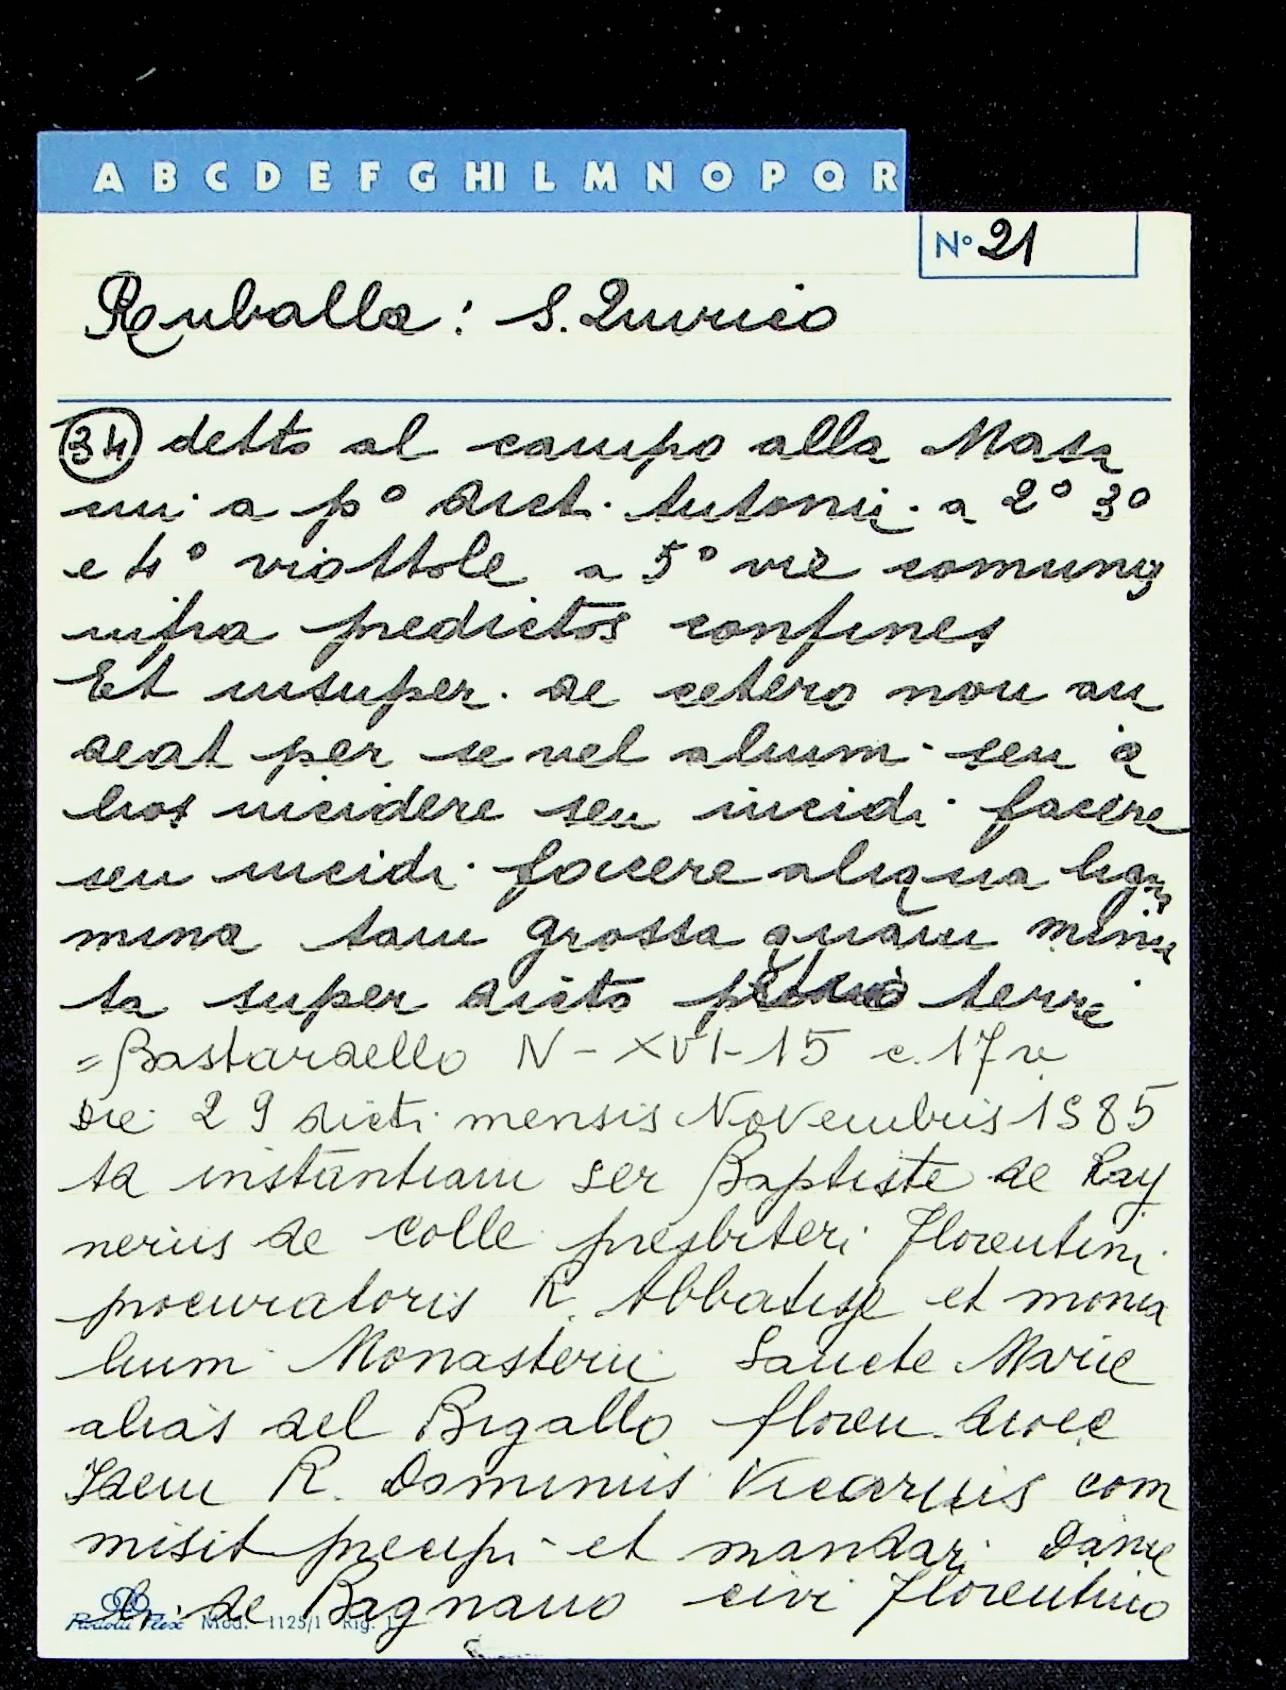 A B C D E F G HI L M N O P Q R
N° 21
Ruballa: S. Quirico
34 detto al campo alla Masa
ini a p° dict. Antonii. a 2° 3°
e 4° viottole a 5° vie comunis
infra predictos confines
Et insuper. de cetero non au
deat per se vel alium. seu a
lios incidere seu incidi. facere
seu incidi. facere aliqua lig
mina tam grossa quam minu
ta super dicto terre
= Bastardello N - XVI - 15 c. 17 v
Die 29 dicti mensis Novembris 1585
Ad instantiam ser Baptiste de Ray
nerius de Colle presbiteri Florentini.
procuratoris R. Abbatisse et monia
lium Monasterii Sancte Marie
alias del Bigallo floren. dioce
Idem R. Dominus Vicarius com
misit precepi et mandari Danie
li de Bagnano civi Florentino
Mod. 1125/1 Rig. 1